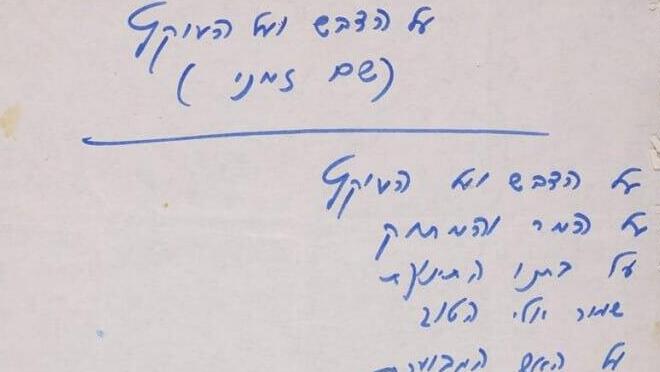 על הדבש ועל העוקץ
(שם זמני)
על הדבש ועל העוקץ
על המר והמתוק
על בתנו התינוקת
שמור אלי הטוב
על האש המבוערת